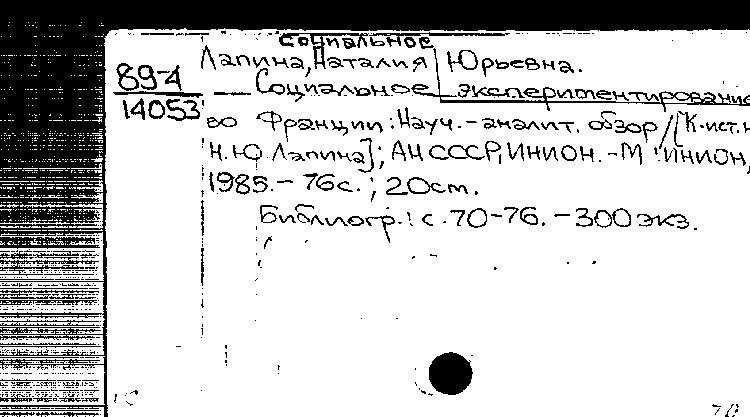 Социальное
Лапина, Наталия Юрьевна.
89-4
14053
Социальное экспериментирование
во Франции: Науч.-аналит. обзор / [К. ист. н.
Н.Ю. Лапина]; АН СССР, ИНИОН. - М.: ИНИОН,
1985. - 76 с.; 20 см.
Библиогр.: с. 70-76. - 300 экз.